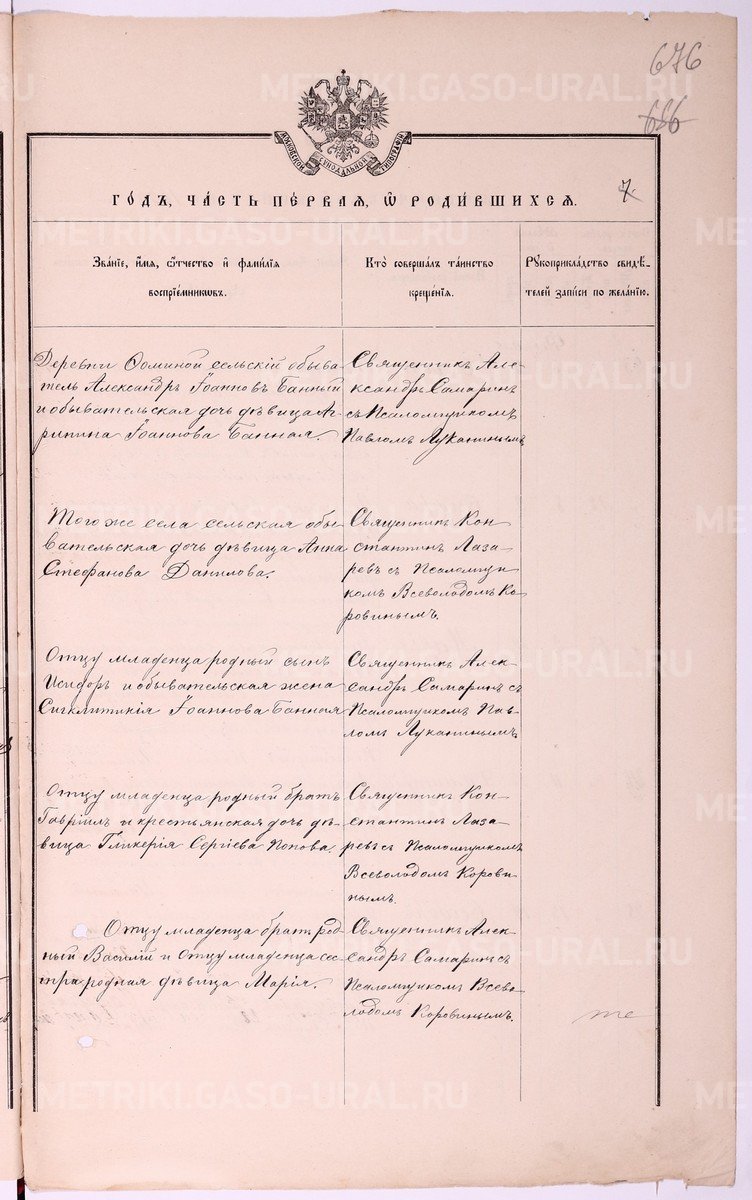 676
686
МОСКОВСКОЙ СѴНОДАЛЬНОЙ ТИПОГРАФІИ
ГО́ДЪ, ЧА́СТЬ ПЕ́РВАЯ, Ѽ РОДИ́ВШИХСЯ.
7.
Зва́нїе, и҆́мя, ѻ҆́тчество и҆ фами́лїя
воспрїе́мникωвъ.
Кто̀ соверша́лъ та́инство
креще́нїѧ.
Рꙋкоприкла́дство свидѣ́-
телей за́писи по жела́нїю.
Деревни Ѳоминой сельскій обыва-
тель Александръ Іоанновъ Банный
и обывательская дочь дѣвица Аг-
рипина Іоаннова Банная.
Священникъ Але-
ксандръ Самаринъ
съ Псаломщикомъ
Павломъ Луканинымъ
Того же села сельская обы-
вательская дочь дѣвица Анна
Стефанова Данилова.
Священникъ Кон-
стантинъ Лаза-
ревъ съ Псаломщи-
комъ Всеволодомъ Ко-
ровинымъ.
Отцу младенца родный сынъ
Исидоръ и обывательская жена
Сигклитикія Іоаннова Банная
Священникъ Алек-
сандръ Самаринъ съ
Псаломщикомъ Пав-
ломъ Луканинымъ.
Отцу младенца родный братъ
Гавріилъ и крестьянская дочь дѣ-
вица Гликерія Сергіева Попова.
Священникъ Кон-
стантинъ Лаза-
ревъ съ Псаломщикомъ
Всеволодомъ Корови-
нымъ.
Отцу младенца братъ род-
ный Василій и Отцу младенца се-
стра родная дѣвица Марія.
Священникъ Алек-
сандръ Самаринъ съ
Псаломщикомъ Всево-
лодомъ Коровинымъ.
METRIKI.GASO-URAL.RU